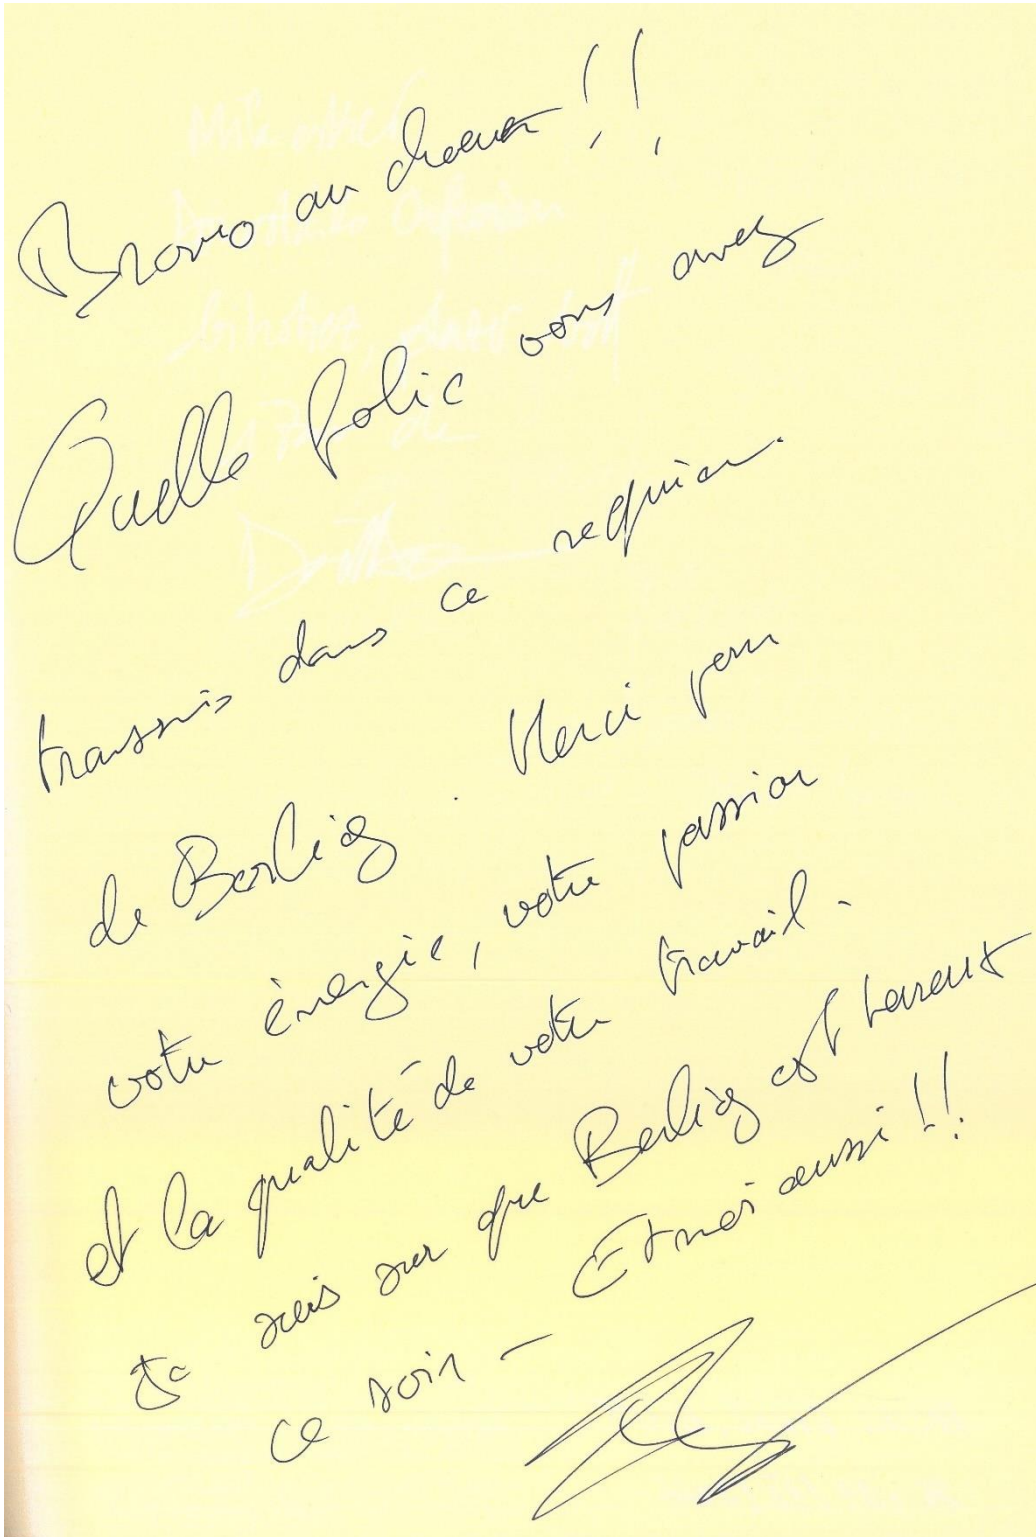 Bravo au choeur !!
Quelle folie vous avez
transmis dans ce requiem.
de Berlioz. Merci pour
votre énergie, votre passion
et la qualité de votre travail.
Je suis sur que Berlioz est heureux
ce soir - Et moi aussi !!